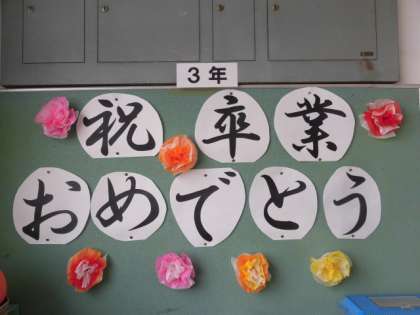 3年
祝卒業
おめでとう